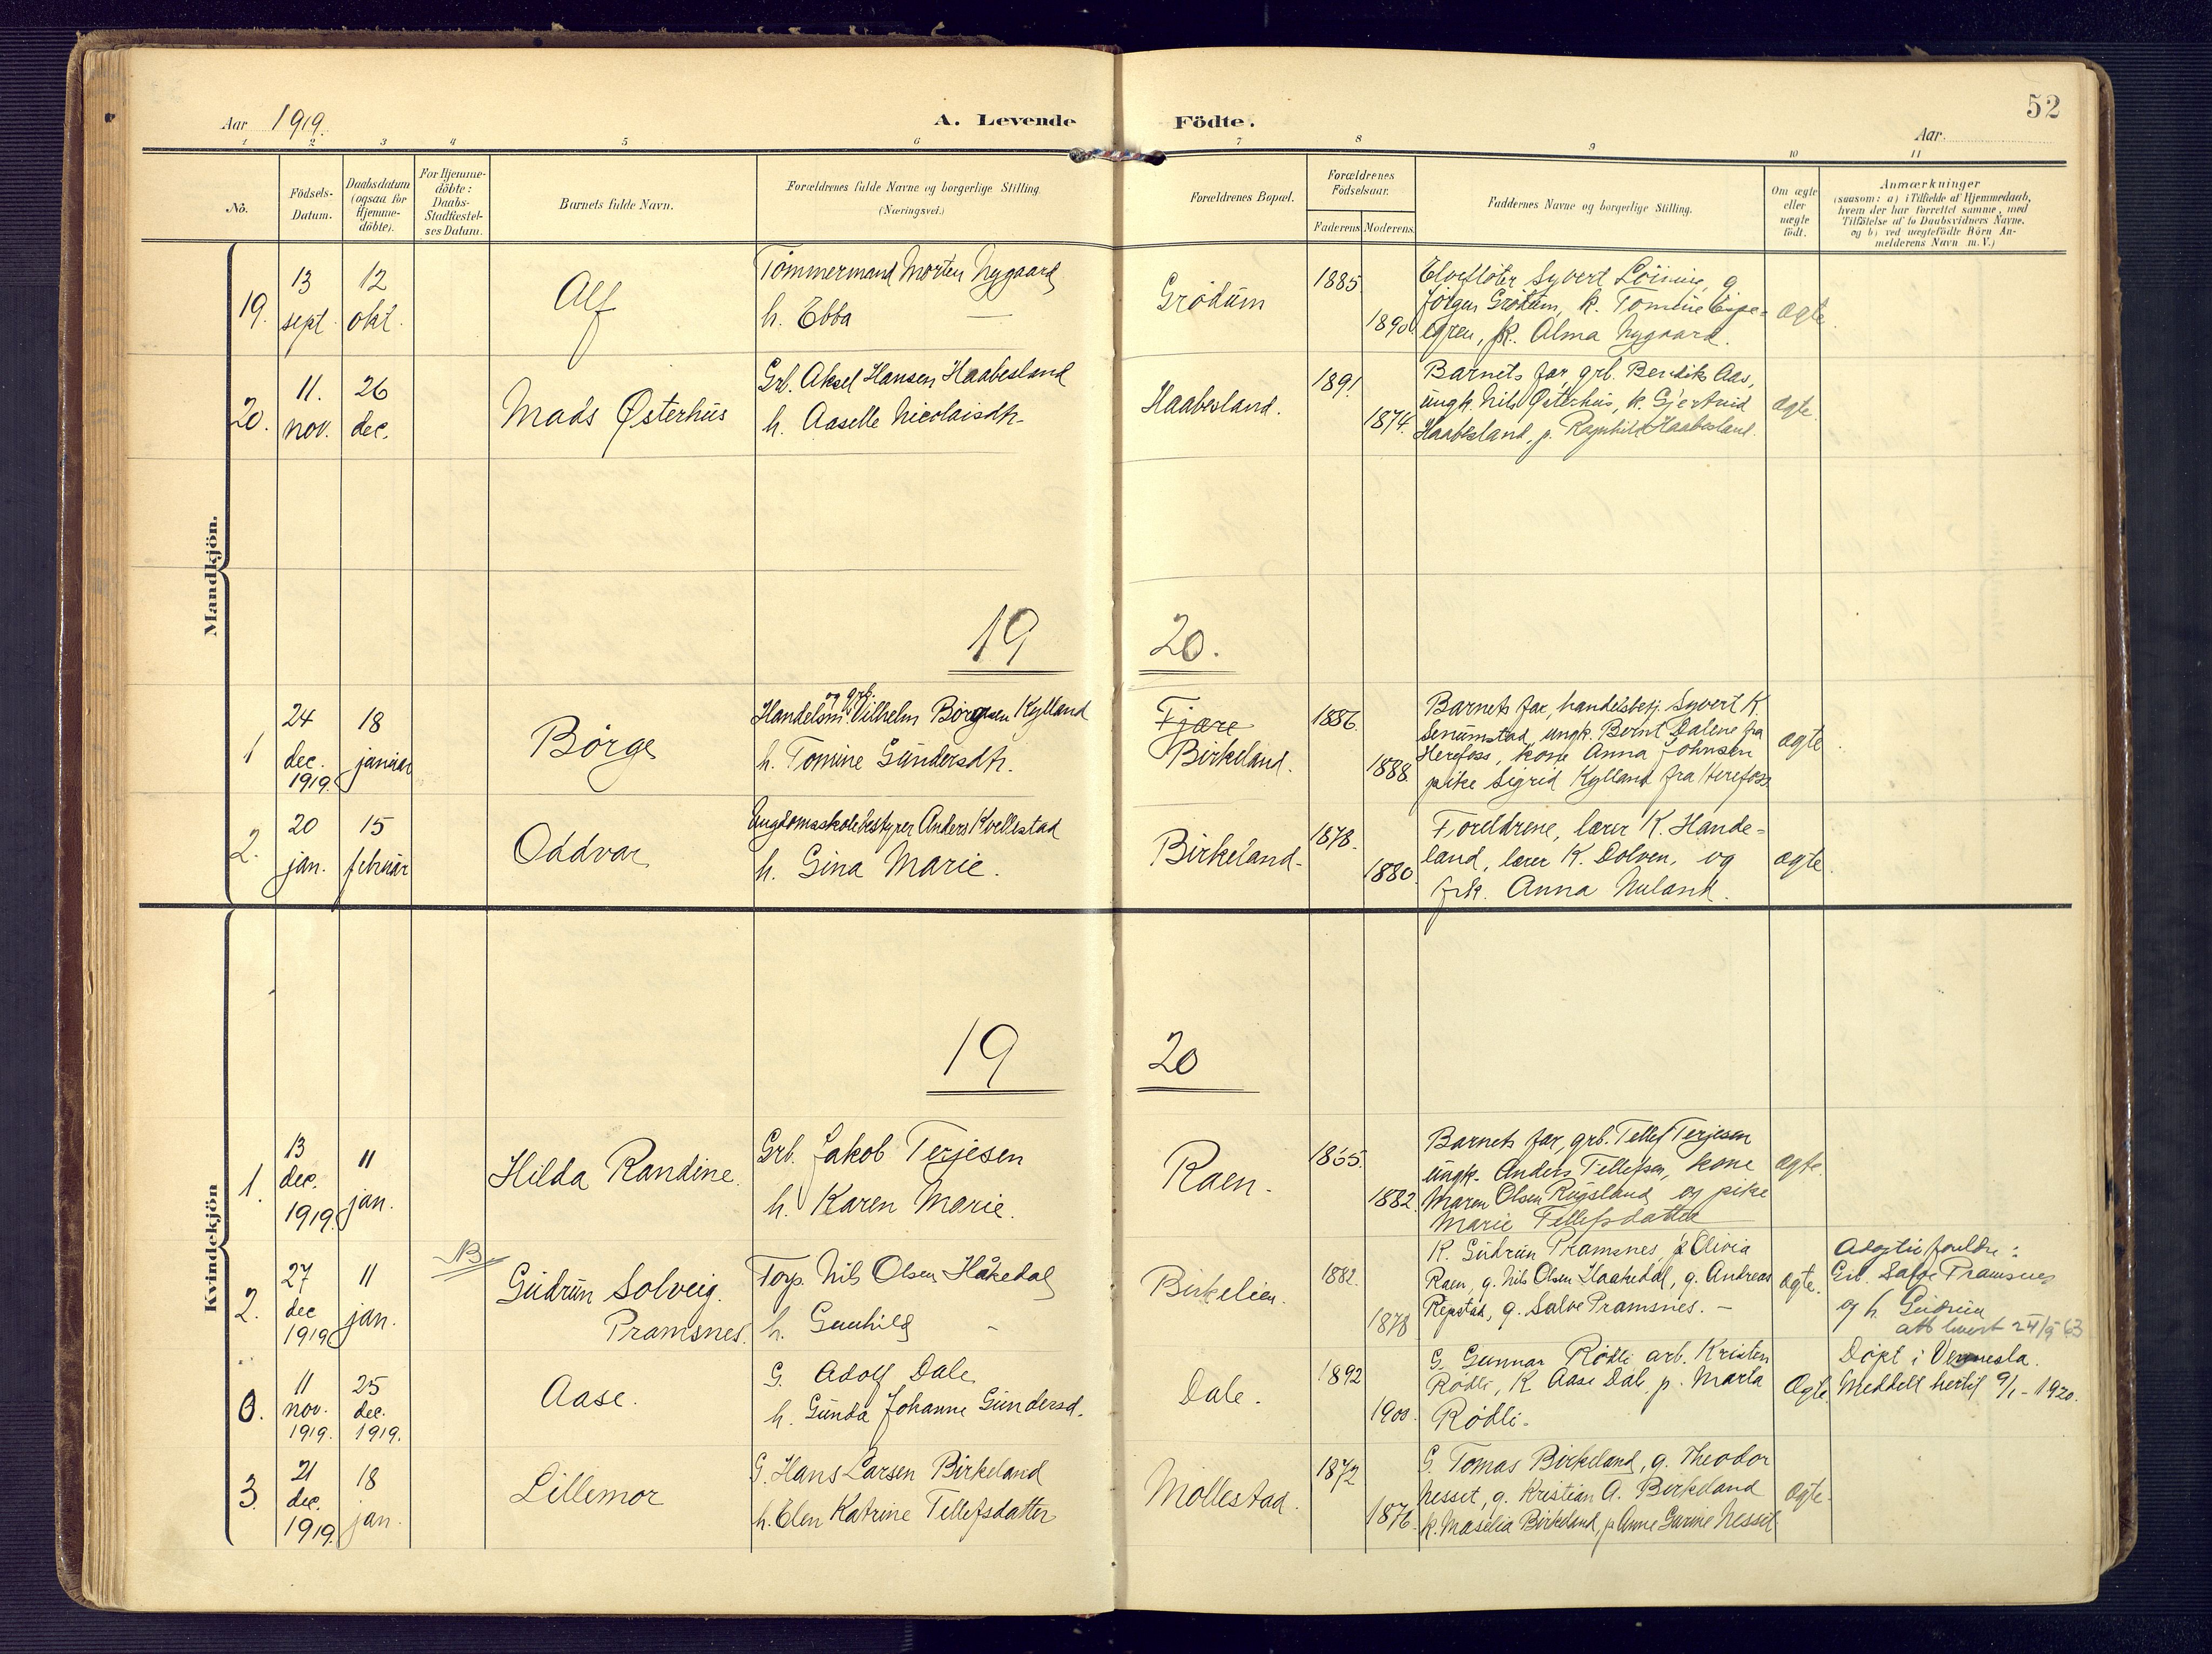 52
Aar 1919.
A. Levende Födte.
Aar
1 2 3 4 5 6 7 8 9 10 11
No.
Födsels-
Datum.
Daabsdatum
(ogsaa for
Hjemme-
döbte).
For Hjemme-
döbte:
Daabs-
Stadfæstel-
ses Datum.
Barnets fulde Navn.
Forældrenes fulde Navne og borgerlige Stilling
(Næringsvei.)
Forældrenes Bopæl.
Forældrenes
Födselsaar.
Faderens Moderens
Faddernes Navne og borgerlige Stilling.
Om ægte
eller
uægte
födt.
Anmærkninger
(saasom: a) i Tilfælde af Hjemmedaab,
hvem der har forrettet samme, med
Tilföielse af to Daabsvidners Navne,
og b) ved uægtefödte Börn An-
melderens Navn m. V.)
Mandkjön.
19.
13
sept.
12
okt.
Alf
Tømmermand Morten Nygaard
h. Ebba —
Grødum
1885
1890
Elvefløter Syvert g.
Jørgen Grødum, k. Tomine
Alma Nygaard.
ægte.
20.
11.
nov.
26
dec.
Mads Østerhus
Grb. Aksel Hansen Haabesland
h. Aaselle Nicolaisdtr.
Haabesland.
1891
1874.
Barnets far, grb. Bendik Aas,
ungk. Nils Østerhus, k. Gjertrud
Haabesland, p. Ragnhild Haabesland.
ægte.
19 20.
1
24
dec.
1919.
18
januar
Børge
og grb.
Handelsm. Vilhelm Børgesen Kylland
h. Tomine Gundersdtr.
Fjære
Birkeland.
1886.
1888.
Barnets far, handelsbetj. Syvert K.
Senumstad, ungk. Bernt Dalene fra
Herefoss, kone Anna Johnsen
pike Sigrid Kylland fra Herefoss.
ægte.
2.
20
jan.
15
februar
Oddvar
Ungdomsskolebestyrer Anders Kvellestad
h. Gina Marie.
Birkeland.
1878.
1880.
Foreldrene, lærer K. Hande-
land, lærer K. Dolven, og
frk. Anna Nuland.
ægte.
Kvindekjön
19 20
1.
13
dec.
1919.
11
jan.
Hilda Randine.
Grb. Jakob Terjesen
h. Karen Marie.
Raen.
1865.
1882.
Barnets far, grb. Tellef Terjesen
ungk. Anders Tellefsen, kone
Maren Olsen Rugsland og pike
Marie Tellefsdatter
ægte.
2.
27
dec
1919
11
jan.
NB
Gudrun Solveig.
Pramsnes.
Torp. Nils Olsen Håkedal
h. Gunhild -
Birkelien.
1882.
1878
K. Gudrun Pramsnes, p. Olivia
Raen, g. Nils Olsen Haakedal, g. Andreas
Repstad, g. Salve Pramsnes. -
ægte.
Adoptivforeldre:
Grb. Salve Pramsnes
og h. Gudrun
24/9 63
0.
11
nov.
1919.
25
dec.
1919.
Aase.
G. Adolf Dale
h. Gunda Johanne Gundersd.
Dale.
1892
1900.
G. Gunnar Rødli arb. Kristen
Rødli, K Aase Dale, p. Marta
Rødli.
Ægte.
Døpt i Vennesla.
Meddelt hertil 9/1-1920.
3.
21
dec.
1919.
18
jan.
Lillemor
G. Hans Larsen Birkeland
h. Elen Katrine Tellefsdatter
Mollestad.
1872
1876.
G. Tomas Birkeland, g. Theodor
Nesset, g. Kristian A. Birkeland
k. Maselia Birkeland, p. Anne Gurine Nesset
ægte.